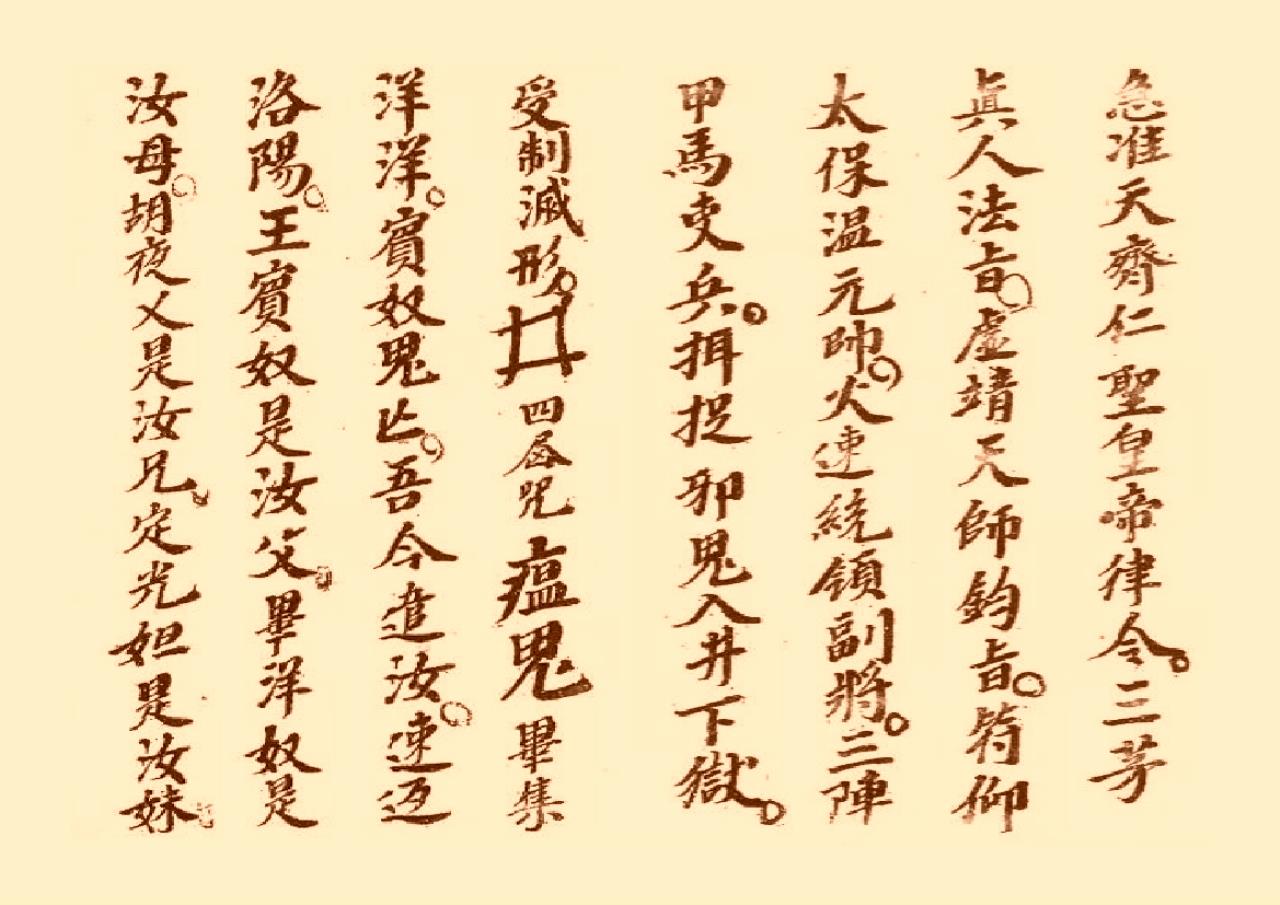 急准天齊仁聖皇帝律令。三茅
眞人法旨。虛靖天師鈞旨。符仰
太保温元帥。火速統領副將。三陣
甲馬吏兵。揖捉邪鬼入井下獄。
受制滅形。井四咒瘟鬼畢集
洋洋。賓奴鬼亡。吾今遣汝。速返
洛陽。王賓奴是汝父。畢洋奴是
汝母。胡夜乂是汝兄。定光妲是汝妹。